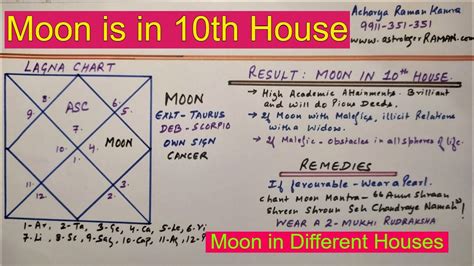 Moon is in 10th House
Acharya Raman Kamra
9911-351-351
www.astrologerRAMAN.com
LAGNA CHART
8. 6.
9. ASC 5.
7.
10. 4. MOON
1.
11. 3.
12. 2.
MOON
EXLT - TAURUS
DEB - SCORPIO
OWN SIGN
CANCER
RESULT: MOON IN 10th HOUSE.
→ High Academic Attainments. Brilliant
and will do Pious Deeds.
→ If Moon with Malefics, illicit Relations
with a Widow.
→ If Malefic - Obstacles in all spheres of life.
REMEDIES
If favourable - Wear a Pearl.
Chant Moon Mantra - "Aum Shraan
Shreen Shroun Seh Chandraye Namah"
WEAR A 2-MUKHI RUDRAKSHA
1-Ar, 2-Ta, 3-Ge, 4-Ca, 5-Le, 6-Vi
7-Li, 8-Sc, 9-Sag, 10-Cap, 11-Aq, 12-P
Moon in Different Houses